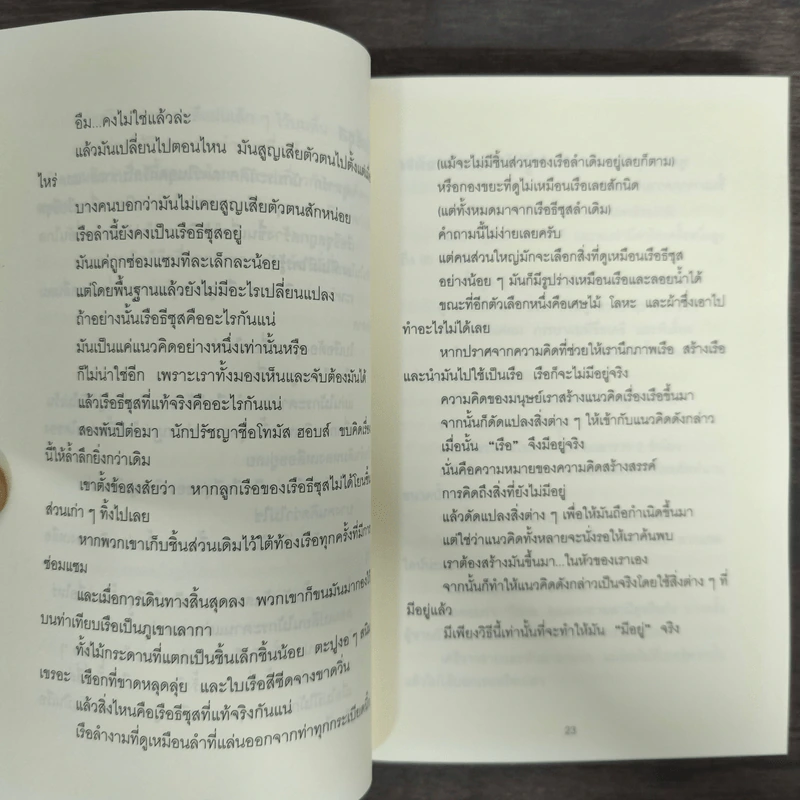 อืม...คงไม่ใช่แล้วล่ะ
แล้วมันเปลี่ยนไปตอนไหน มันสูญเสียตัวตนไปตั้งแต่
ไหร่
บางคนบอกว่ามันไม่เคยสูญเสียตัวตนสักหน่อย
เรือลำนี้ยังคงเป็นเรือธีซุสอยู่
มันแค่ถูกซ่อมแซมทีละเล็กละน้อย
แต่โดยพื้นฐานแล้วยังไม่มีอะไรเปลี่ยนแปลง
ถ้าอย่างนั้นเรือธีซุสคืออะไรกันแน่
มันเป็นแค่แนวคิดอย่างหนึ่งเท่านั้นหรือ
ก็ไม่น่าใช่อีก เพราะเราทั้งมองเห็นและจับต้องมันได้
แล้วเรือธีซุสที่แท้จริงคืออะไรกันแน่
สองพันปีต่อมา นักปรัชญาชื่อโทมัส ฮอบส์ ขบคิด
นี้ให้ล้ำลึกยิ่งกว่าเดิม
เขาตั้งข้อสงสัยว่า หากลูกเรือของเรือธีซุสไม่ได้โยน
ส่วนเก่า ๆ ทิ้งไปเลย
หากพวกเขาเก็บชิ้นส่วนเดิมไว้ใต้ท้องเรือทุกครั้งที่มี
ซ่อมแซม
และเมื่อการเดินทางสิ้นสุดลง พวกเขาก็ขนมันมากอง
บนท่าเทียบเรือเป็นภูเขาเลากา
ทั้งไม้กระดานที่แตกเป็นชิ้นเล็กชิ้นน้อย ตะปูงอ ๆ
เขรอะ เชือกที่ขาดหลุดลุ่ย และใบเรือสีซีดจางขาดวิ่น
แล้วสิ่งไหนคือเรือธีซุสที่แท้จริงกันแน่
เรือลำงามที่ดูเหมือนลำที่แล่นออกจากท่าทุกกระเบียดนิ้ว
(แม้จะไม่มีชิ้นส่วนของเรือลำเดิมอยู่เลยก็ตาม)
หรือกองขยะที่ดูไม่เหมือนเรือเลยสักนิด
(แต่ทั้งหมดมาจากเรือธีซุสลำเดิม)
คำถามนี้ไม่ง่ายเลยครับ
แต่คนส่วนใหญ่มักจะเลือกสิ่งที่ดูเหมือนเรือธีซุส
อย่างน้อย ๆ มันก็มีรูปร่างเหมือนเรือและลอยน้ำได้
ขณะที่อีกตัวเลือกหนึ่งคือเศษไม้ โลหะ และผ้าซึ่งเอาไป
ทำอะไรไม่ได้เลย
หากปราศจากความคิดที่ช่วยให้เรานึกภาพเรือ สร้างเรือ
และนำมันไปใช้เป็นเรือ เรือก็จะไม่มีอยู่จริง
ความคิดของมนุษย์เราสร้างแนวคิดเรื่องเรือขึ้นมา
จากนั้นก็ดัดแปลงสิ่งต่าง ๆ ให้เข้ากับแนวคิดดังกล่าว
เมื่อนั้น “เรือ” จึงมีอยู่จริง
นั่นคือความหมายของความคิดสร้างสรรค์
การคิดถึงสิ่งที่ยังไม่มีอยู่
แล้วดัดแปลงสิ่งต่าง ๆ เพื่อให้มันถือกำเนิดขึ้นมา
แต่ใช่ว่าแนวคิดทั้งหลายจะนั่งรอให้เราค้นพบ
เราต้องสร้างมันขึ้นมา...ในหัวของเราเอง
จากนั้นก็ทำให้แนวคิดดังกล่าวเป็นจริงโดยใช้สิ่งต่าง ๆ ที่
มีอยู่แล้ว
มีเพียงวิธีนี้เท่านั้นที่จะทำให้มัน “มีอยู่” จริง
23